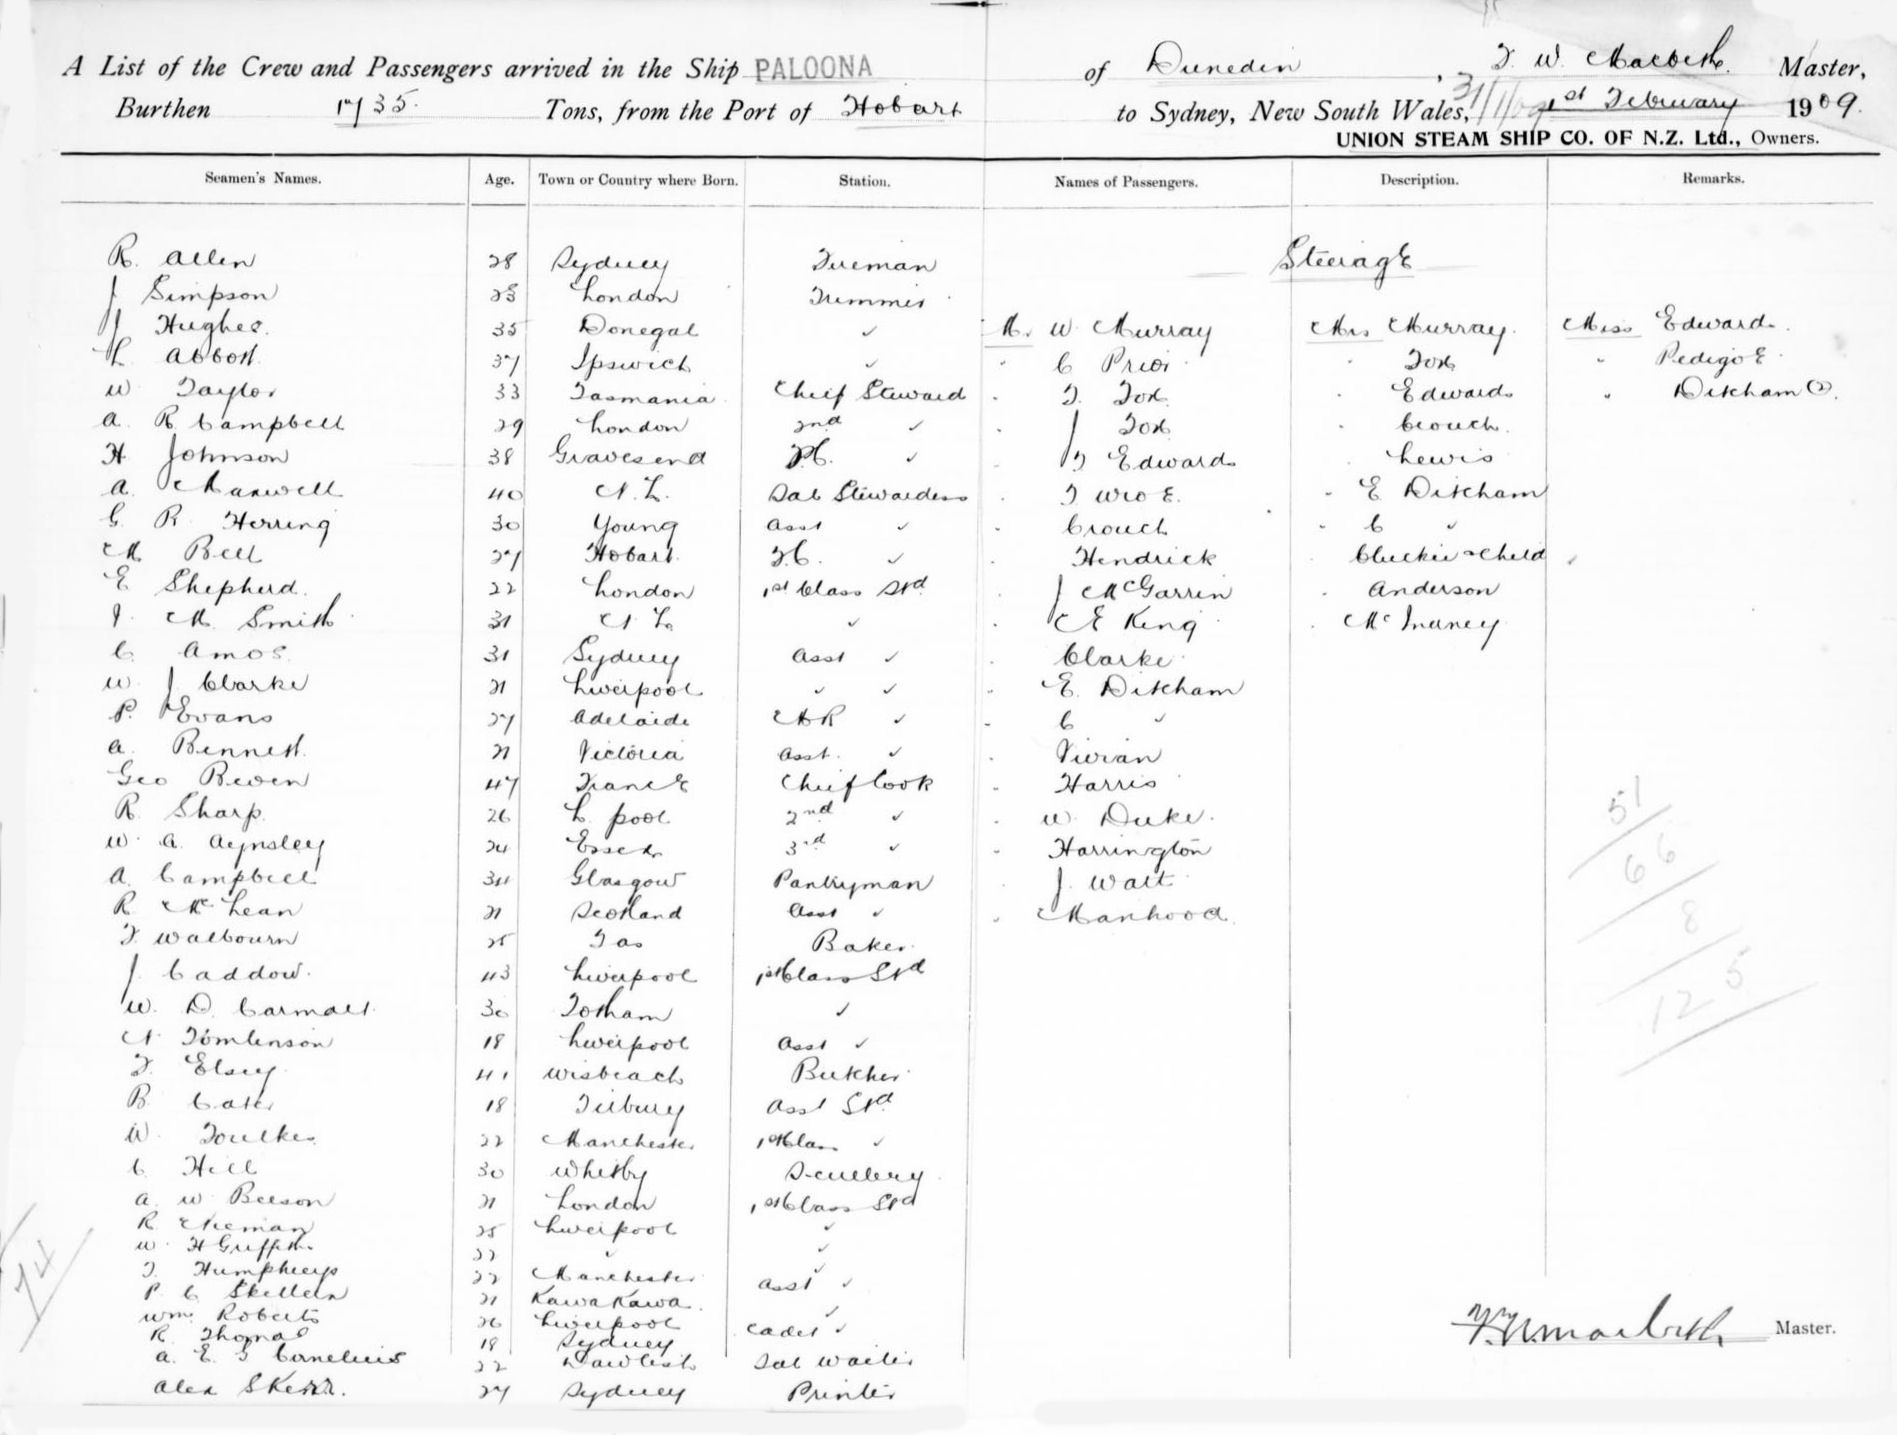 A List of the Crew and Passengers arrived in the Ship PALOONA of Dunedin, T. W. Macbeth. Master,
Burthen 1735. Tons, from the Port of Hobart to Sydney, New South Wales, 31/1/09 1st February 1909.
UNION STEAM SHIP CO. OF N.Z. Ltd., Owners.
Seamen's Names. Age. Town or Country where Born. Station. Names of Passengers. Description. Remarks.
R. Allen 28 Sydney Fireman Steerage
J Simpson 23 London Trimmer
J Hughes. 35 Donegal ✓ Mr. W. Murray Mrs Murray. Miss Edwards.
L Abbott. 37 Ipswich ✓ C Prior Fox Pedigo E.
W Taylor 33 Tasmania Chief Steward F. Fox Edwards Ditcham (2).
A. R. Campbell 29 London 2nd ✓ J Fox Crouch.
H Johnson 38 Gravesend ✓ F Edwards Lewis
A. Maxwell 40 N. Z. Sal Stewardess E Ditcham
G. R. Herring 30 Young Asst ✓ Crouch C ✓
M Bell 27 Hobart. F.C. ✓ Hendrick Cluckie & Child
E Shepherd. 22 London 1st Class Std J McGarrin Anderson
J. M. Smith 31 N. Z. ✓ E King
C. Amos 31 Sydney Asst ✓ Clarke
W. J Clarke 21 Liverpool ✓ ✓ E. Ditcham
P. Evans 27 Adelaide ✓ C ✓
A. Bennett. 21 Victoria Asst. ✓ Vivian
Geo Bewen 47 France Chief Cook Harris
R. Sharp. 26 L. pool 2nd ✓ W. Duke. 51
W. A. Aynsley 24 Essex 3rd ✓ Harrington 66
A. Campbell 34 Glasgow Pantryman J. Watt
R McLean 21 Scotland Asst ✓ Manhood. 8
F. Walbourn 25 Tas Baker.
J. Caddow. 43 Liverpool 1st Class Std 125
W. D. Carmalt 30 Totham ✓
N Tomlinson 18 Liverpool Asst ✓
F. Elsey 41 Wisbeach Butcher
B. Cater 18 Tilbury Asst Std
W. Foulkes 22 Manchester 1st Class ✓
C Hill 30 Whitby Scullery
A. W. Beeson 21 London 1st Class Std
R. 25 Liverpool ✓
W. H Griffiths 22 ✓ ✓
J. Humphreys 22 Manchester ✓
P. C Skellern 21 Kawa Kawa. Asst ✓
Wm. Roberts 26 Liverpool ✓
R. Thomas 18 Sydney Cadet ✓
A. E. J Cornelius 22 Dawlish Sal Waiter
Alex Skerr. 27 Sydney Printer
74
T. W. Macbeth Master.